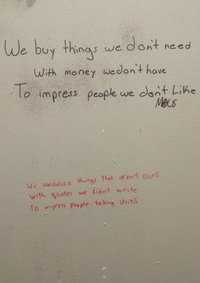 We buy things we don't need
With money we don't have
To impress people we don't Like
We vandalise things that aren't ours
With quotes we didn't write
To impress people taking shits